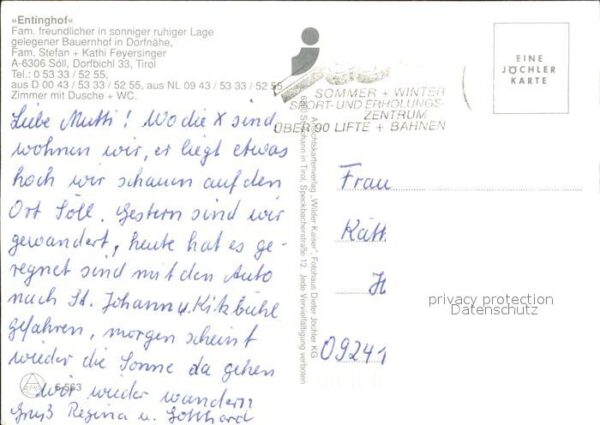 »Entinghof«
Fam. freundlicher in sonniger ruhiger Lage
gelegener Bauernhof in Dorfnähe,
Fam. Stefan + Kathi Feyersinger
A-6306 Söll, Dorfbichl 33, Tirol
Tel.: 0 53 33 / 52 55,
aus D 00 43 / 53 33 / 52 55, aus NL 09 43 / 53 33 / 52 55
Zimmer mit Dusche + WC.
Liebe Mutti! Wo die X sind,
wohnen wir, er liegt etwas
hoch wir schauen auf den
Ort Söll. Gestern sind wir
gewandert, heute hat es ge-
regnet sind mit den Auto
nach St. Johann u. Kitzbühl
gefahren, morgen scheint
wieder die Sonne da gehen
wir wieder wandern
Gruß Regina u. Gotthard
6-563
SOMMER + WINTER
SPORT- UND ERHOLUNGS-
ZENTRUM
ÜBER 90 LIFTE + BAHNEN
EINE
JÖCHLER
KARTE
Ansichtskartenverlag „Wilder Kaiser“, Fotohaus Dieter Jöchler KG
St. Johann in Tirol, Speckbacherstraße 12. Jede Vervielfältigung
verboten
Frau
Kätt
H
09241
privacy protection
Datenschutz